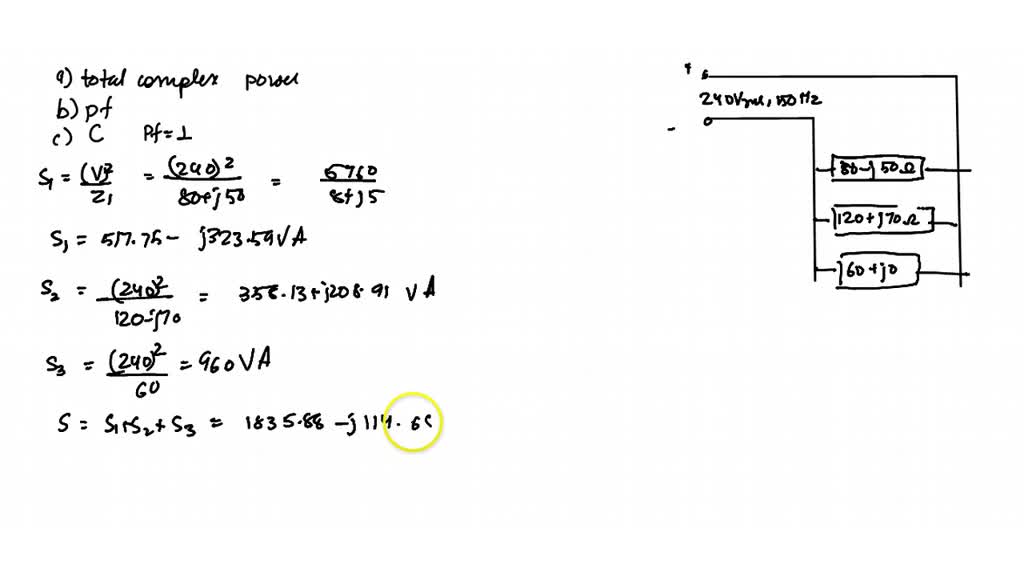 a) total complex power
b) pf
c) C Pf=1
S1 = (V)²/Z1 = (240)²/80+j50 = 5760/8+j5
S1 = 517.75 - j323.59VA
S2 = (240)²/120-j70 = 358.13+j208.91 VA
S3 = (240)²/60 = 960VA
S = S1+S2+S3 = 1835.88 - j114.68
+
240Vrms, 150Hz
-
80-j50Ω
120+j70Ω
60+j0